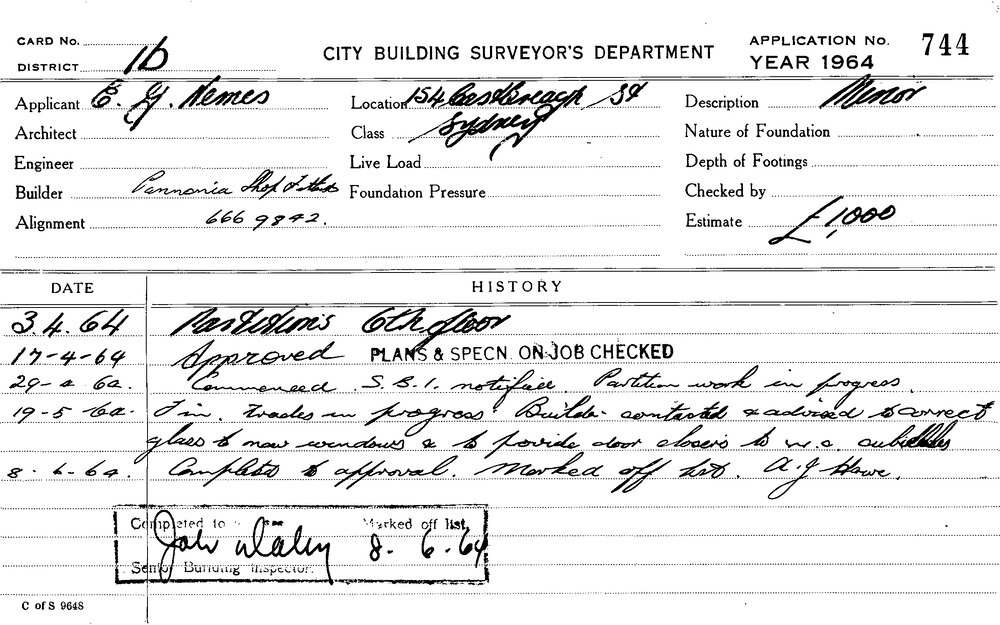 CARD No.
DISTRICT 1b
CITY BUILDING SURVEYOR'S DEPARTMENT
APPLICATION No. 744
YEAR 1964
Applicant E. G. Nemes
Location 154 Castlereagh St
Sydney
Description Minor
Architect
Class
Nature of Foundation
Engineer
Live Load
Depth of Footings
Builder Pannonia Shop Fitters
Foundation Pressure
Checked by
Alignment 666 9842.
Estimate £1,000
DATE HISTORY
3.4.64 Partitions 6th floor
17-4-64 Approved PLANS & SPECN. ON JOB CHECKED
29-4-64. Commenced S.B.I. notified. Partition work in progress.
19-5-64. Fin. trades in progress. Builder contacted & advised to correct
glass to new windows & to provide door closers to w.c. cubicles
8-6-64. Completed to approval. Marked off list. A. J. Howe.
Completed to
Marked off list,
8-6-64
Senior Building Inspector.
C of S 9648